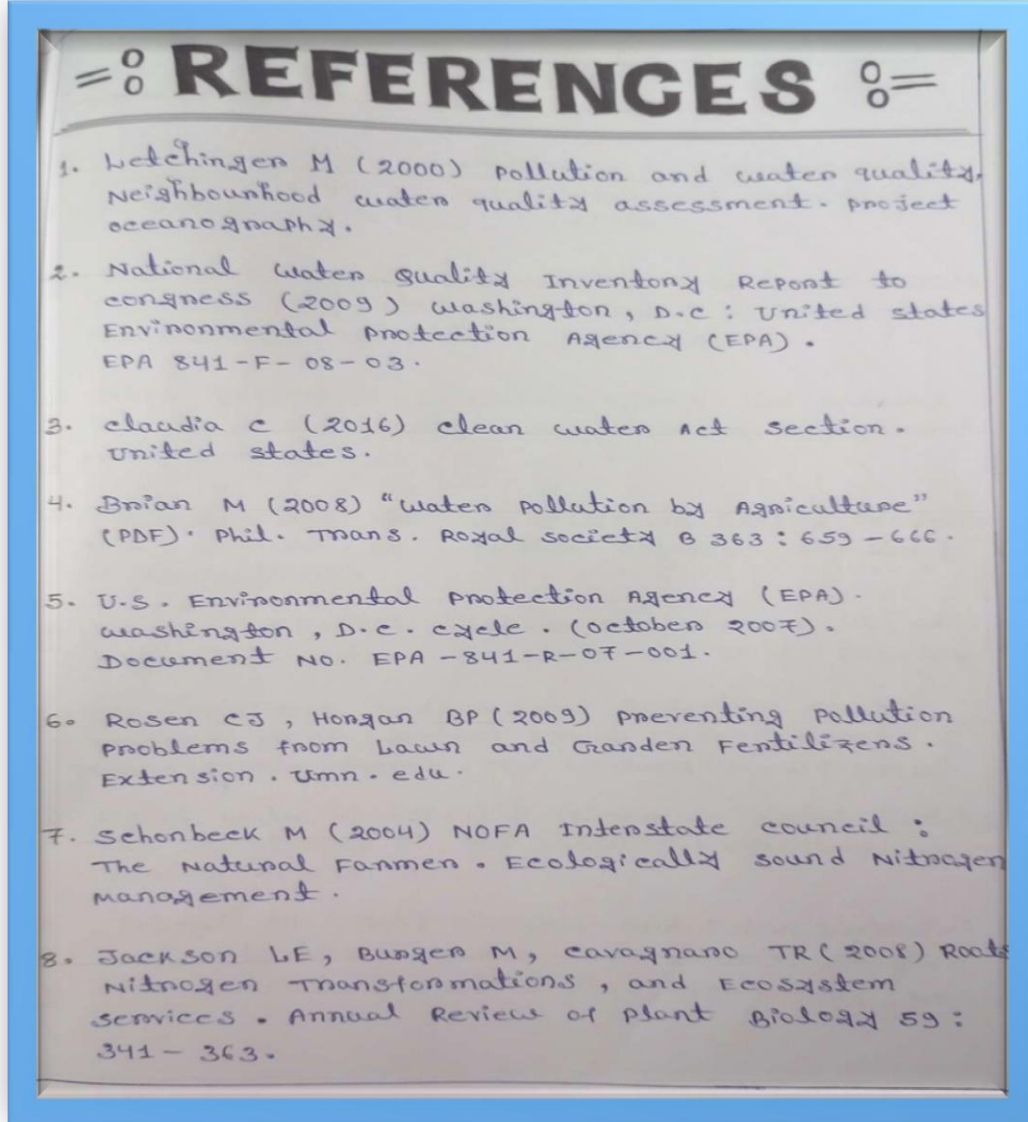 =: REFERENCES :=
1. Letchinger M (2000) Pollution and water quality,
Neighbourhood water quality assessment. Project
oceanography.
2. National Water Quality Inventory Report to
congress (2009) Washington, D.C : United states
Environmental Protection Agency (EPA).
EPA 841-F-08-03.
3. Claudia C (2016) clean water Act section.
United states.
4. Brian M (2008) "Water Pollution by Agriculture"
(PDF). Phil. Trans. Royal society B 363 : 659-666.
5. U.S. Environmental Protection Agency (EPA).
Washington, D.C. cycle. (October 2007).
Document No. EPA-841-R-07-001.
6. Rosen CJ, Horgan BP (2009) Preventing Pollution
Problems from Lawn and Garden Fertilizers.
Extension. Umn. edu.
7. Schonbeck M (2004) NOFA Interstate council :
The Natural Farmer. Ecologically sound Nitrogen
Management.
8. Jackson LE, Burger M, Cavagnaro TR (2008) Roots
Nitrogen Transformations, and Ecosystem
services. Annual Review of Plant Biology 59 :
341-363.